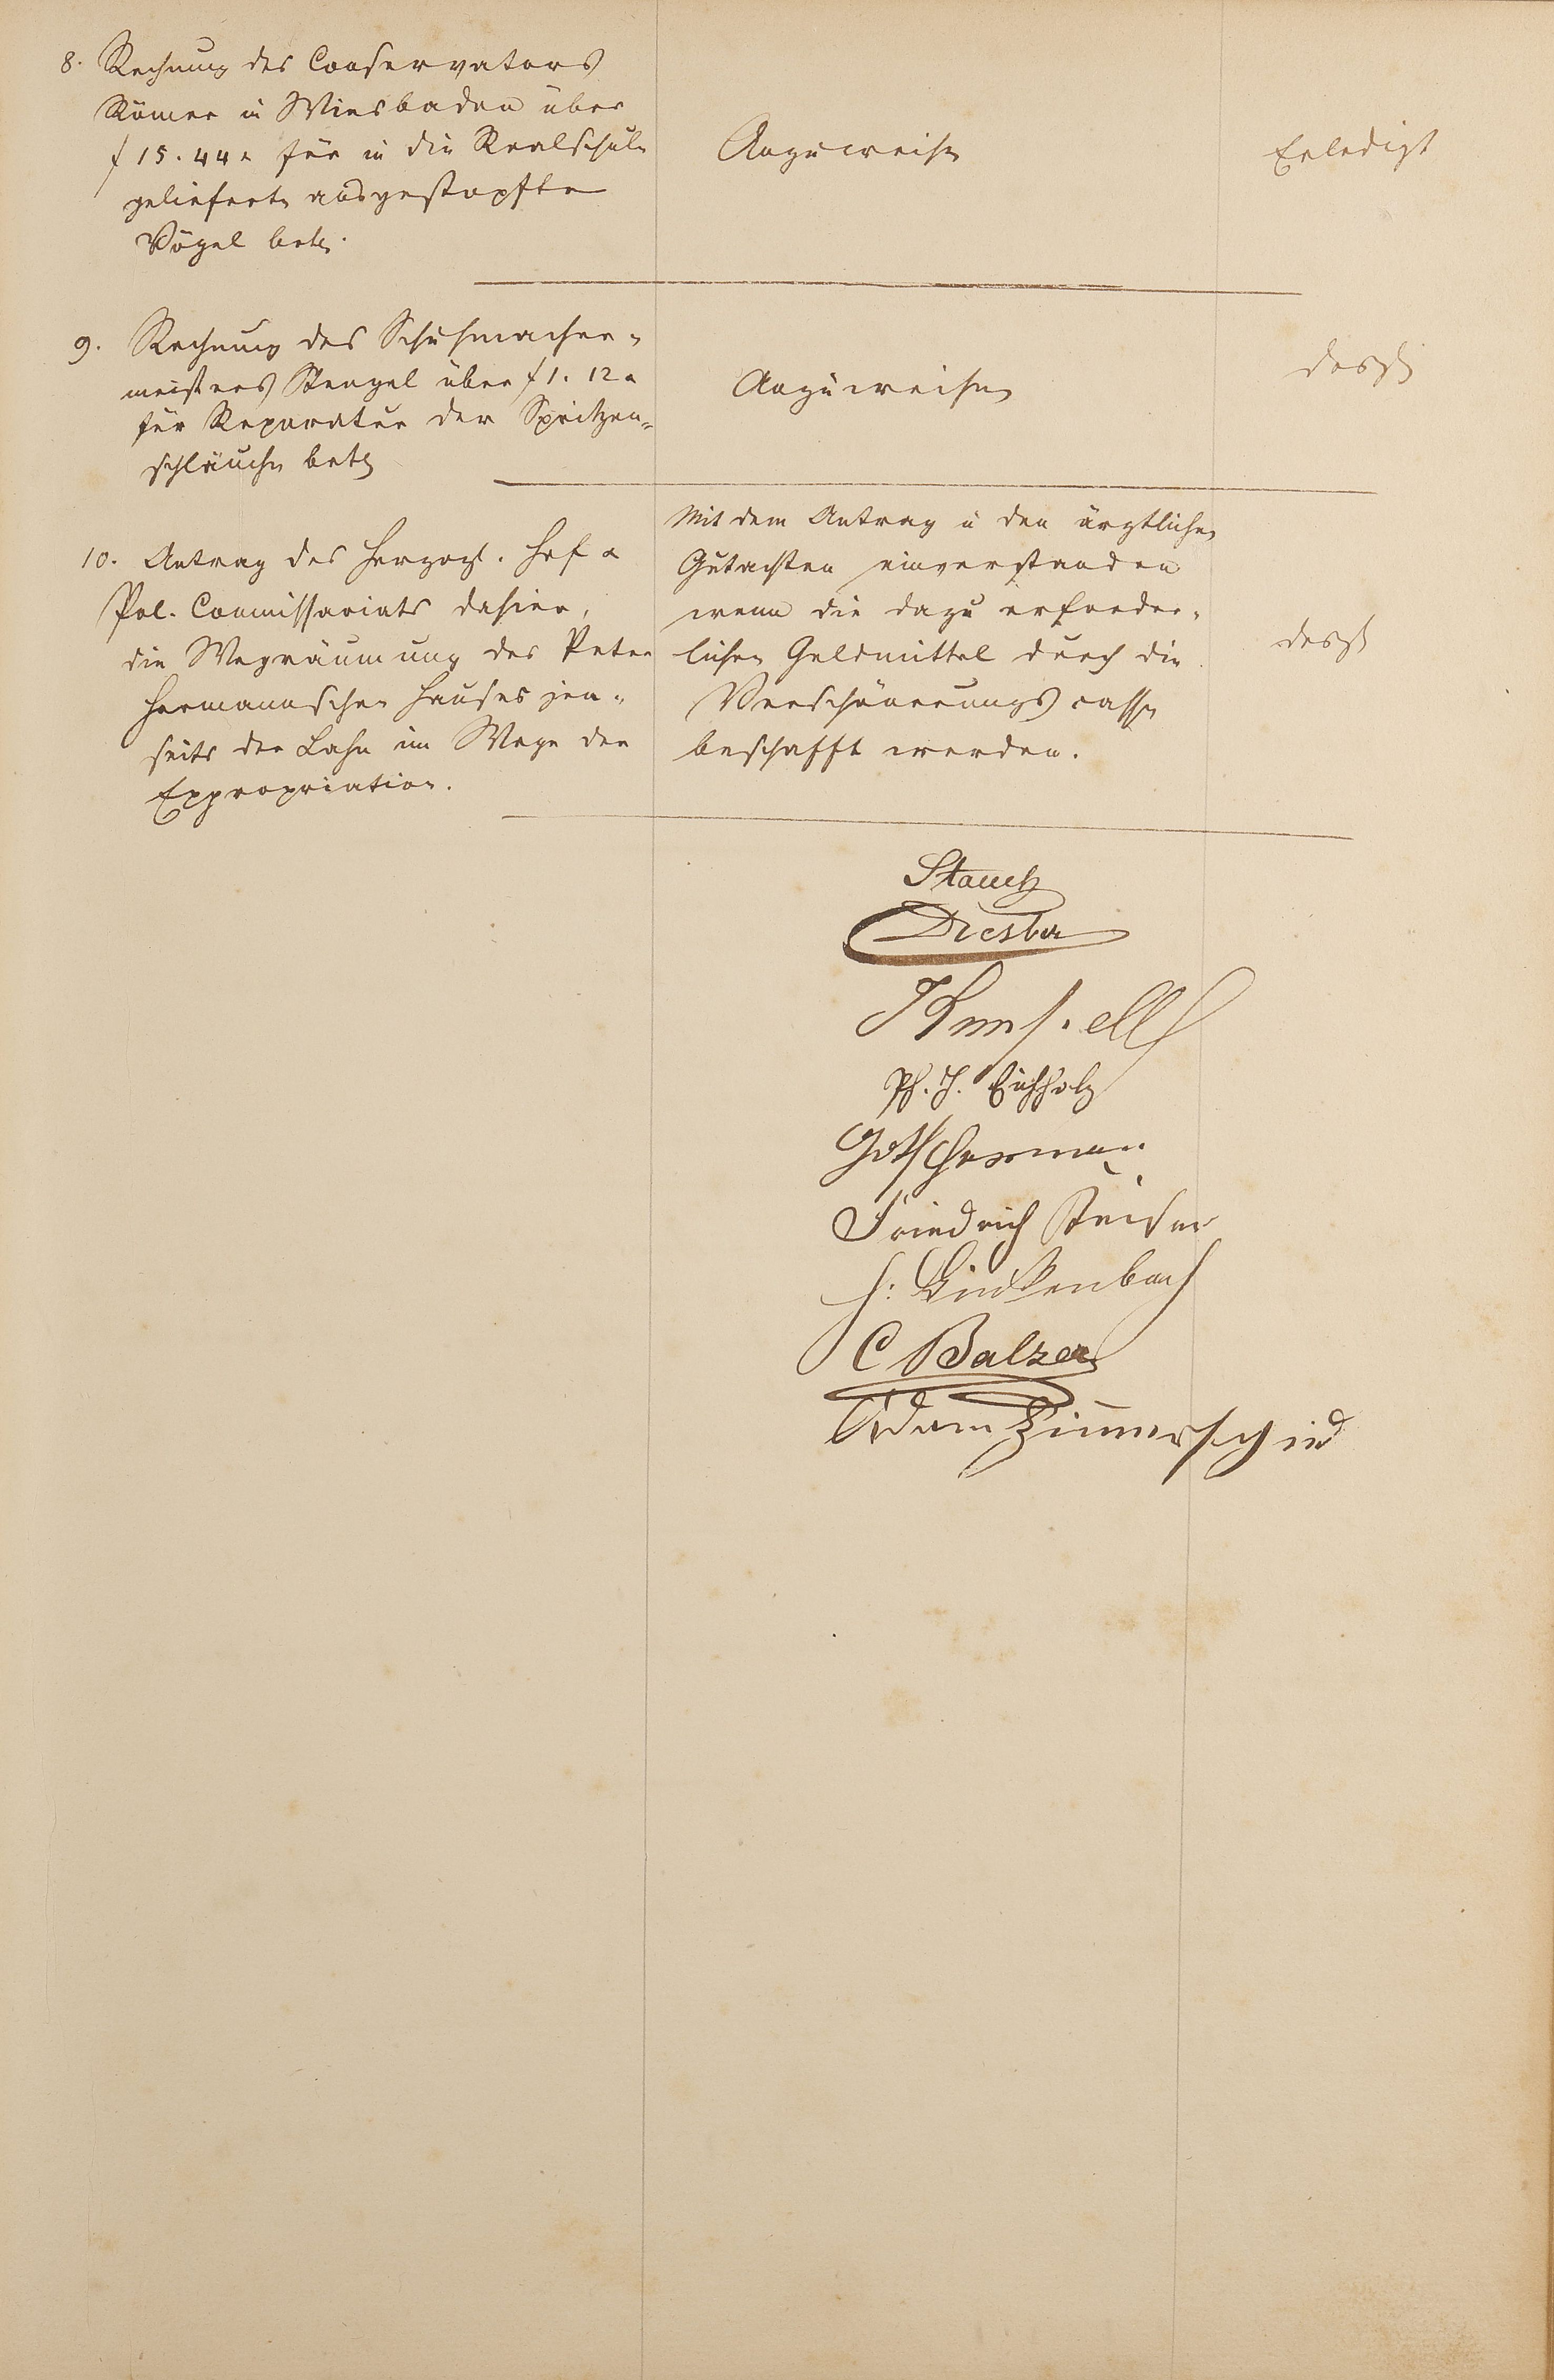 8. Rechnung des Conservators
Römer in Wiesbaden über
f 15. 44 x für in die Realschule
gelieferte ausgestopfte
Vögel betr.
Anzuweisen
Erledigt
9. Rechnung des Schuhmacher-
meisters Stengel über f 1. 12 x
für Reparatur der Spritzen-
schläuche betr
Anzuweisen
dessgl
10. Antrag des Herzogl. Hof &
Pol. Commissariats dahier,
die Wegräumung des Peter
Hermannschen Hauses jen-
seits der Lahn im Wege der
Expropriation.
Mit dem Antrag u den ärztlichen
Gutachten einverstanden
wenn die dazu erforder-
lichen Geldmittel durch die
Verschönerungs casse
beschafft werden.
dessgl
Ph. J. Eichholz
Friedrich
H: Linkenbach
C Balzer
Adam Zimmerschied